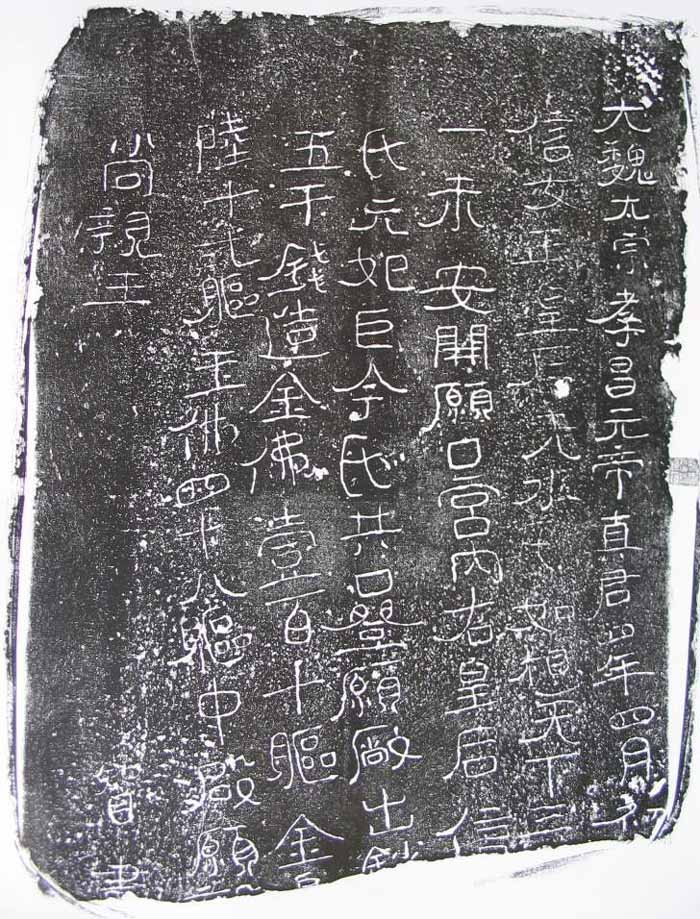 大魏太宗孝昌元帝真君 年四月
信女正皇后元 氏如想天下三
一未安開願口宮內右皇后信
氏元妃巨今氏共口登願敞出錢
五千錢造金佛壹百十軀金
陸十弍軀玉佛四十八軀中啟願
尚親王 書